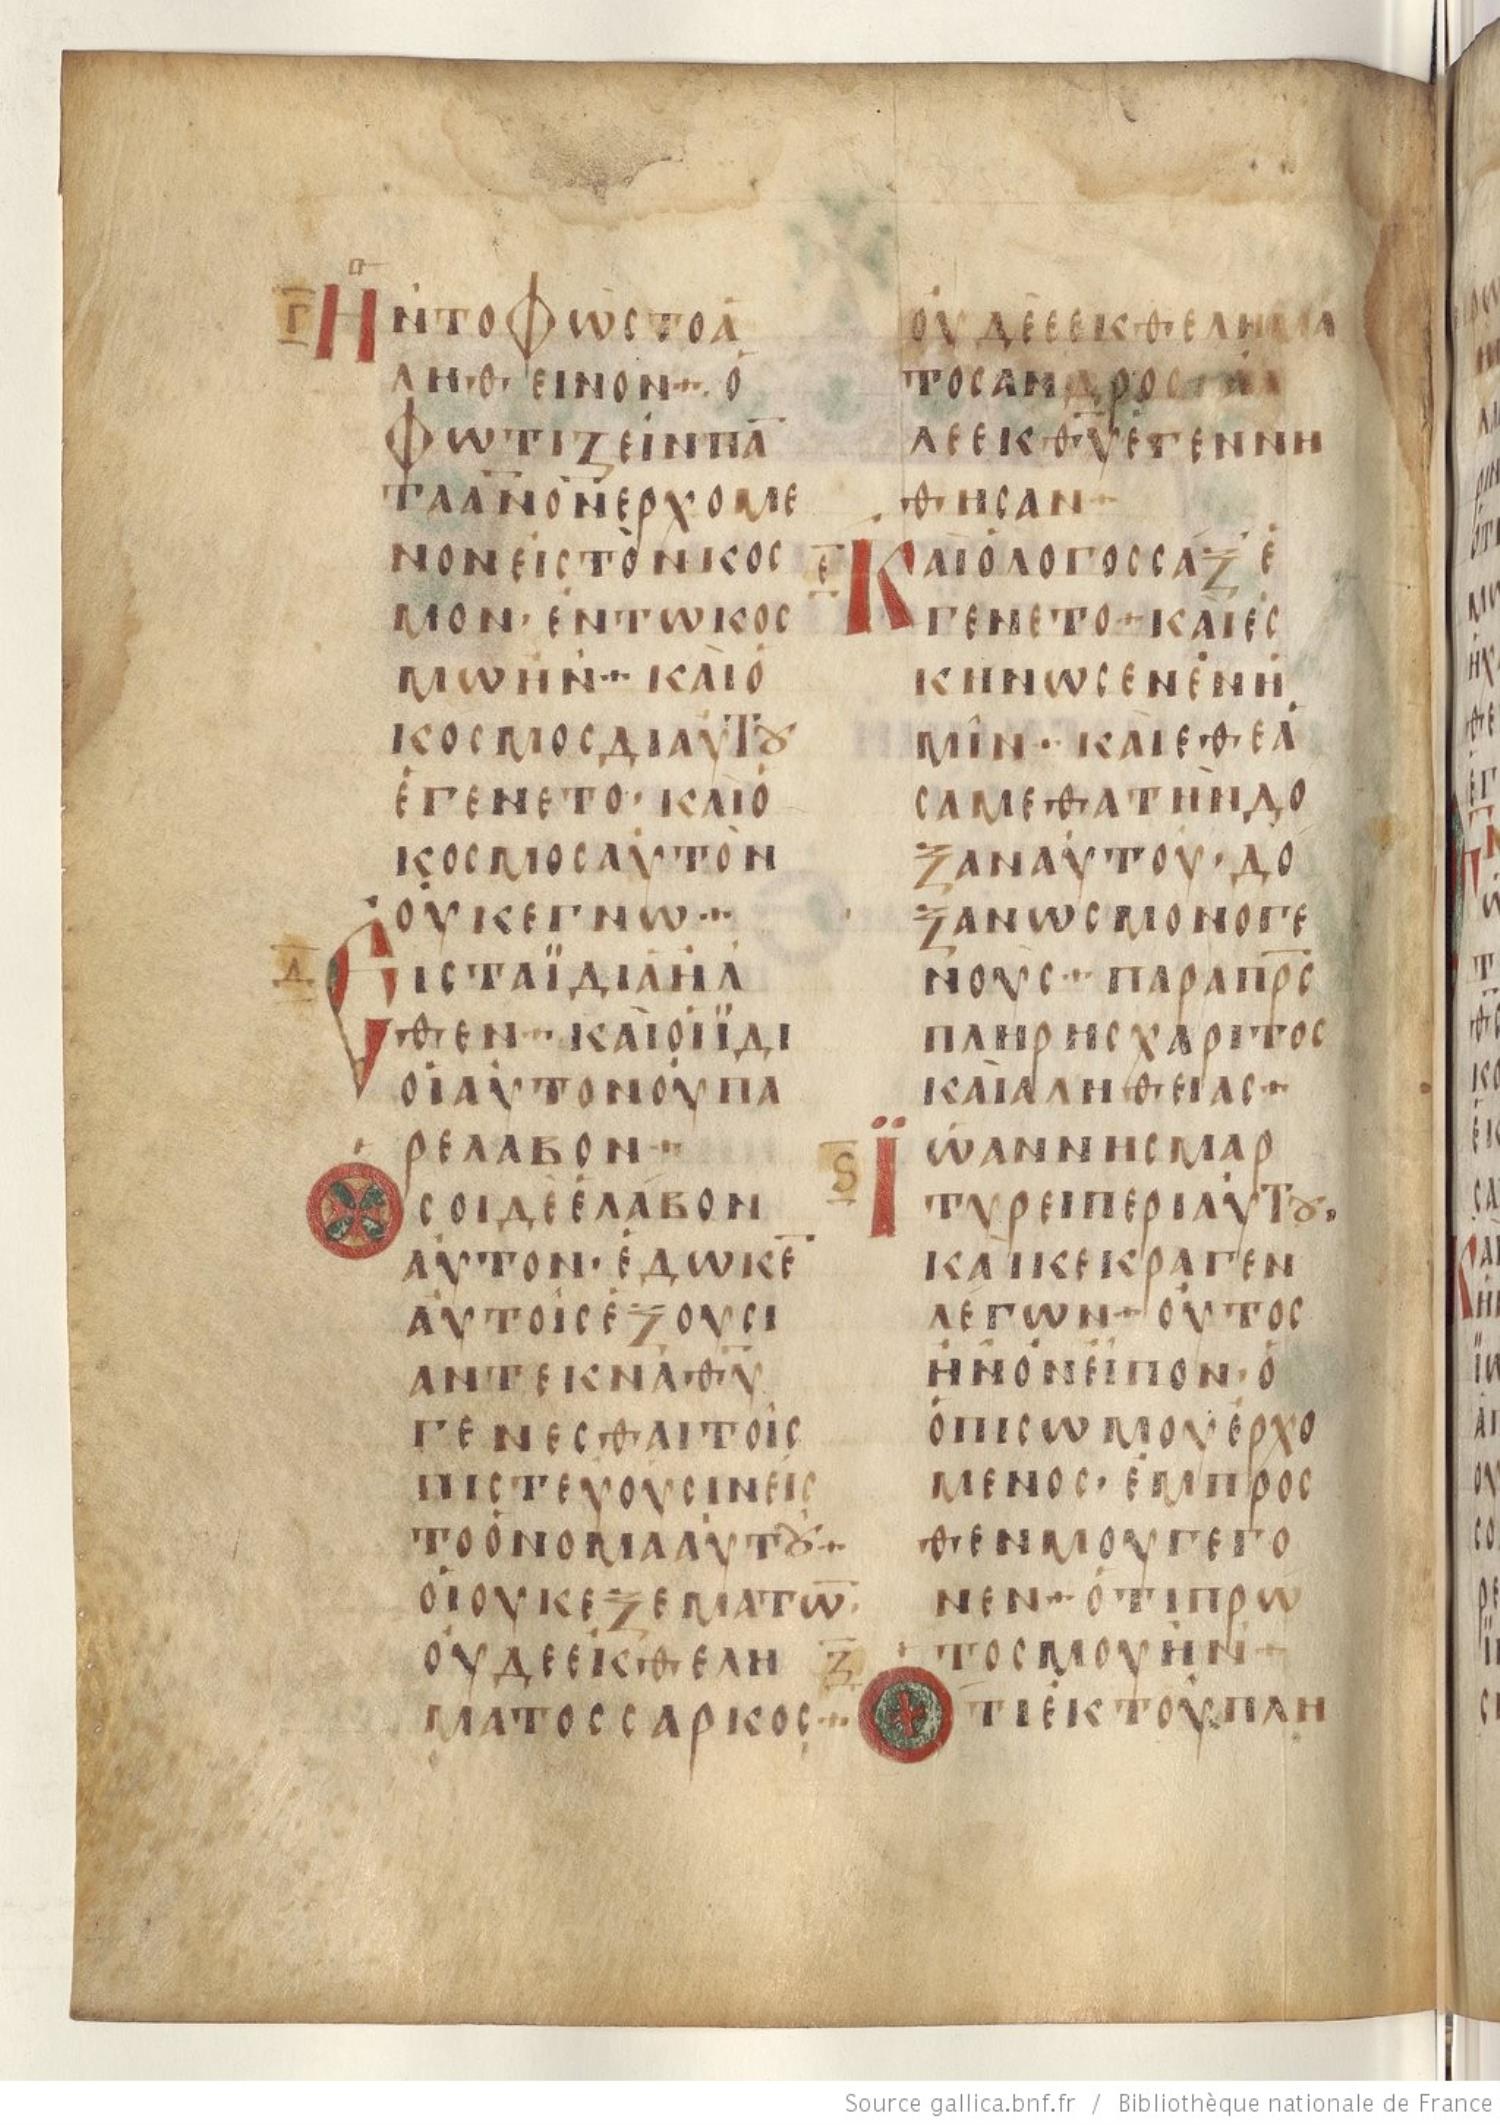 Γ ΗΝΤΟΦΩСΤΟΑ
ΛΗΘΕΙΝΟΝ·Ο
ΦΩΤΙΖΕΙΝΠΑ̅
ΤΑΑ̅Ν̅ΟΝΕΡΧΟΜΕ
ΝΟΝΕΙСΤΟΝΚΟС
ΜΟΝ·ΕΝΤΩΚΟС
ΜΩΗΝ·ΚΑΙΟ
ΚΟСΜΟСΔΙΑΥΤȣ
ΕΓΕΝΕΤΟ·ΚΑΙΟ
ΚΟСΜΟСΑΥΤΟΝ
ΟΥΚΕΓΝΩ·
Δ ΕΙСΤΑΪΔΙΑΗΛ
ΘΕΝ·ΚΑΙΟΙΪΔΙ
ΟΙΑΥΤΟΝΟΥΠΑ
ΡΕΛΑΒΟΝ·
ΟСΟΙΔΕΕΛΑΒΟΝ
ΑΥΤΟΝ·ΕΔΩΚΕ̅
ΑΥΤΟΙСΕΞΟΥСΙ
ΑΝΤΕΚΝΑΘ̅Υ̅
ΓΕΝΕСΘΑΙΤΟΙС
ΠΙСΤΕΥΟΥСΙΝΕΙС
ΤΟΟΝΟΜΑΑΥΤȣ·
ΟΙΟΥΚΕΞΕΜΑΤΩ̅·
ΟΥΔΕΕΚΘΕΛΗ
ΜΑΤΟССΑΡΚΟС·
ΟΥΔΕΕΕΚΘΕΛΗΜΑ
ΤΟСΑΝΔΡΟСΑΛ
ΛΕΕΚΘ̅Υ̅ΕΓΕΝΝΗ
ΘΗСΑΝ·
Ε ΚΑΙΟΛΟΓΟССΑΞΕ
ΓΕΝΕΤΟ·ΚΑΙΕС
ΚΗΝΩСΕΝΕΝΗ
ΜΙΝ·ΚΑΙΕΘΕΑ
СΑΜΕΘΑΤΗΝΔΟ
ΞΑΝΑΥΤΟΥ·ΔΟ
ΞΑΝΩСΜΟΝΟΓΕ
ΝΟΥС·ΠΑΡΑΠ̅Ρ̅С̅
ΠΛΗΡΗСΧΑΡΙΤΟС
ΚΑΙΑΛΗΘΕΙΑС·
Ϛ ΪΩΑΝΝΗСΜΑΡ
ΤΥΡΕΙΠΕΡΙΑΥΤȣ·
ΚΑΙΚΕΚΡΑΓΕΝ
ΛΕΓΩΝ·ΟΥΤΟС
ΗΝΟΝΕΙΠΟΝ·Ο
ΟΠΙСΩΜΟΥΕΡΧΟ
ΜΕΝΟС·ΕΜΠΡΟС
ΘΕΝΜΟΥΓΕΓΟ
ΝΕΝ·ΟΤΙΠΡΩ
ΤΟСΜΟΥΗΝ·
Ζ ΟΤΙΕΚΤΟΥΠΛΗ
Source gallica.bnf.fr / Bibliothèque nationale de France